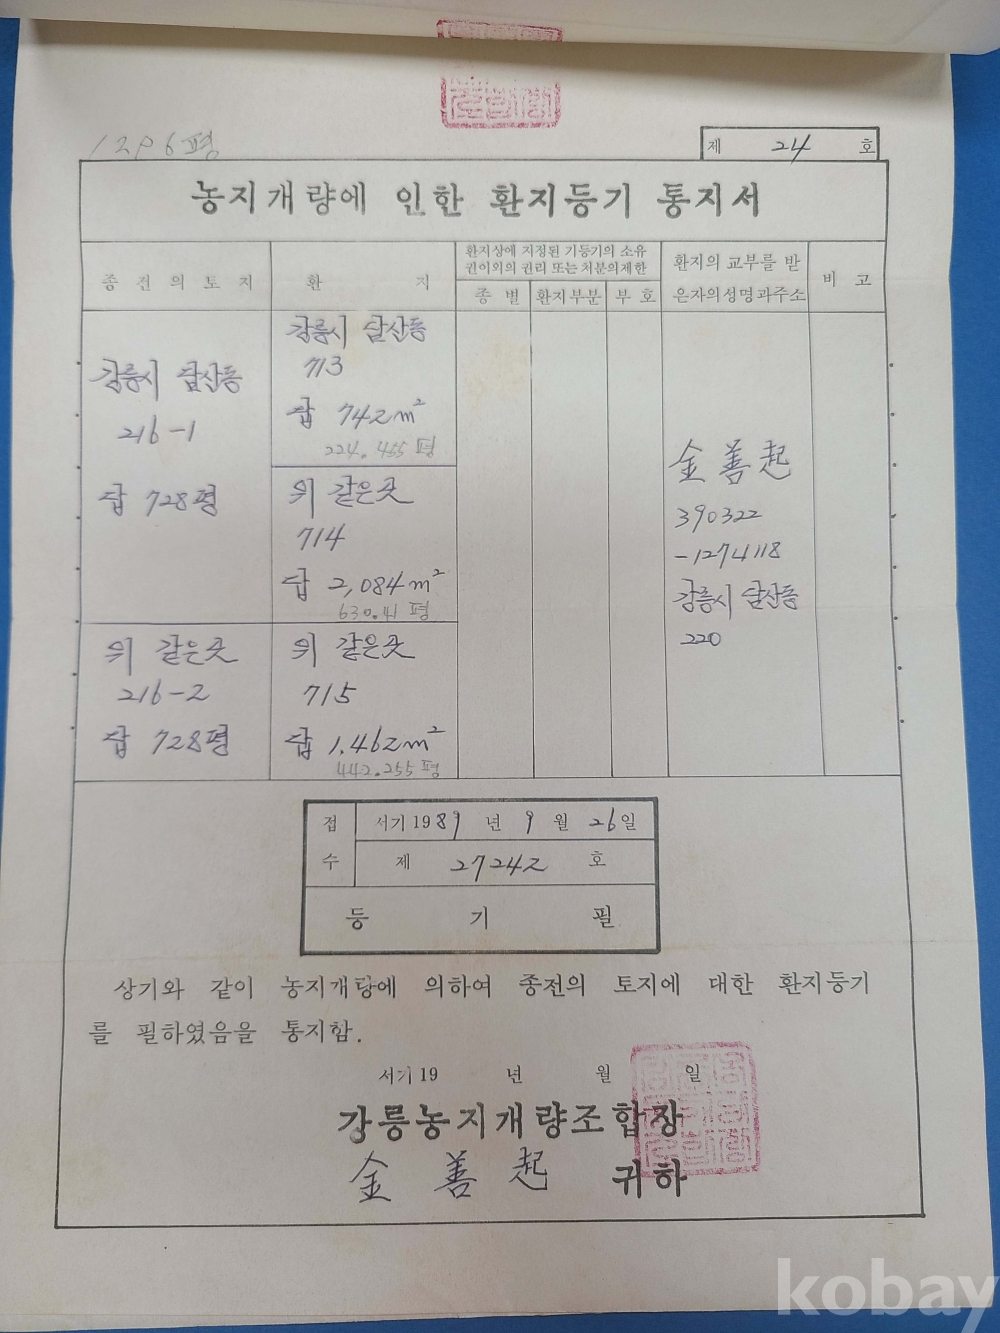 1296평
제 24 호
농지개량에 인한 환지등기 통지서
종전의토지
환지
환지상에 지정된 기등기의 소유
권이외의 권리 또는 처분의제한
종별
환지부분
부호
환지의 교부를 받
은자의성명과주소
비고
강릉시 담산동
216-1
답 728평
강릉시 담산동
713
답 742m²
224.455평
위 같은곳
714
답 2,084m²
630.41평
위 같은곳
216-2
답 728평
위 같은곳
715
답 1.462m²
442.255평
金善起
390322
-1274118
강릉시 담산동
220
접수
서기 1989년 9월 26일
제 27242 호
등기필
상기와 같이 농지개량에 의하여 종전의 토지에 대한 환지등기
를 필하였음을 통지함.
서기 19 년 월 일
강릉농지개량조합장
金善起 귀하
kobay